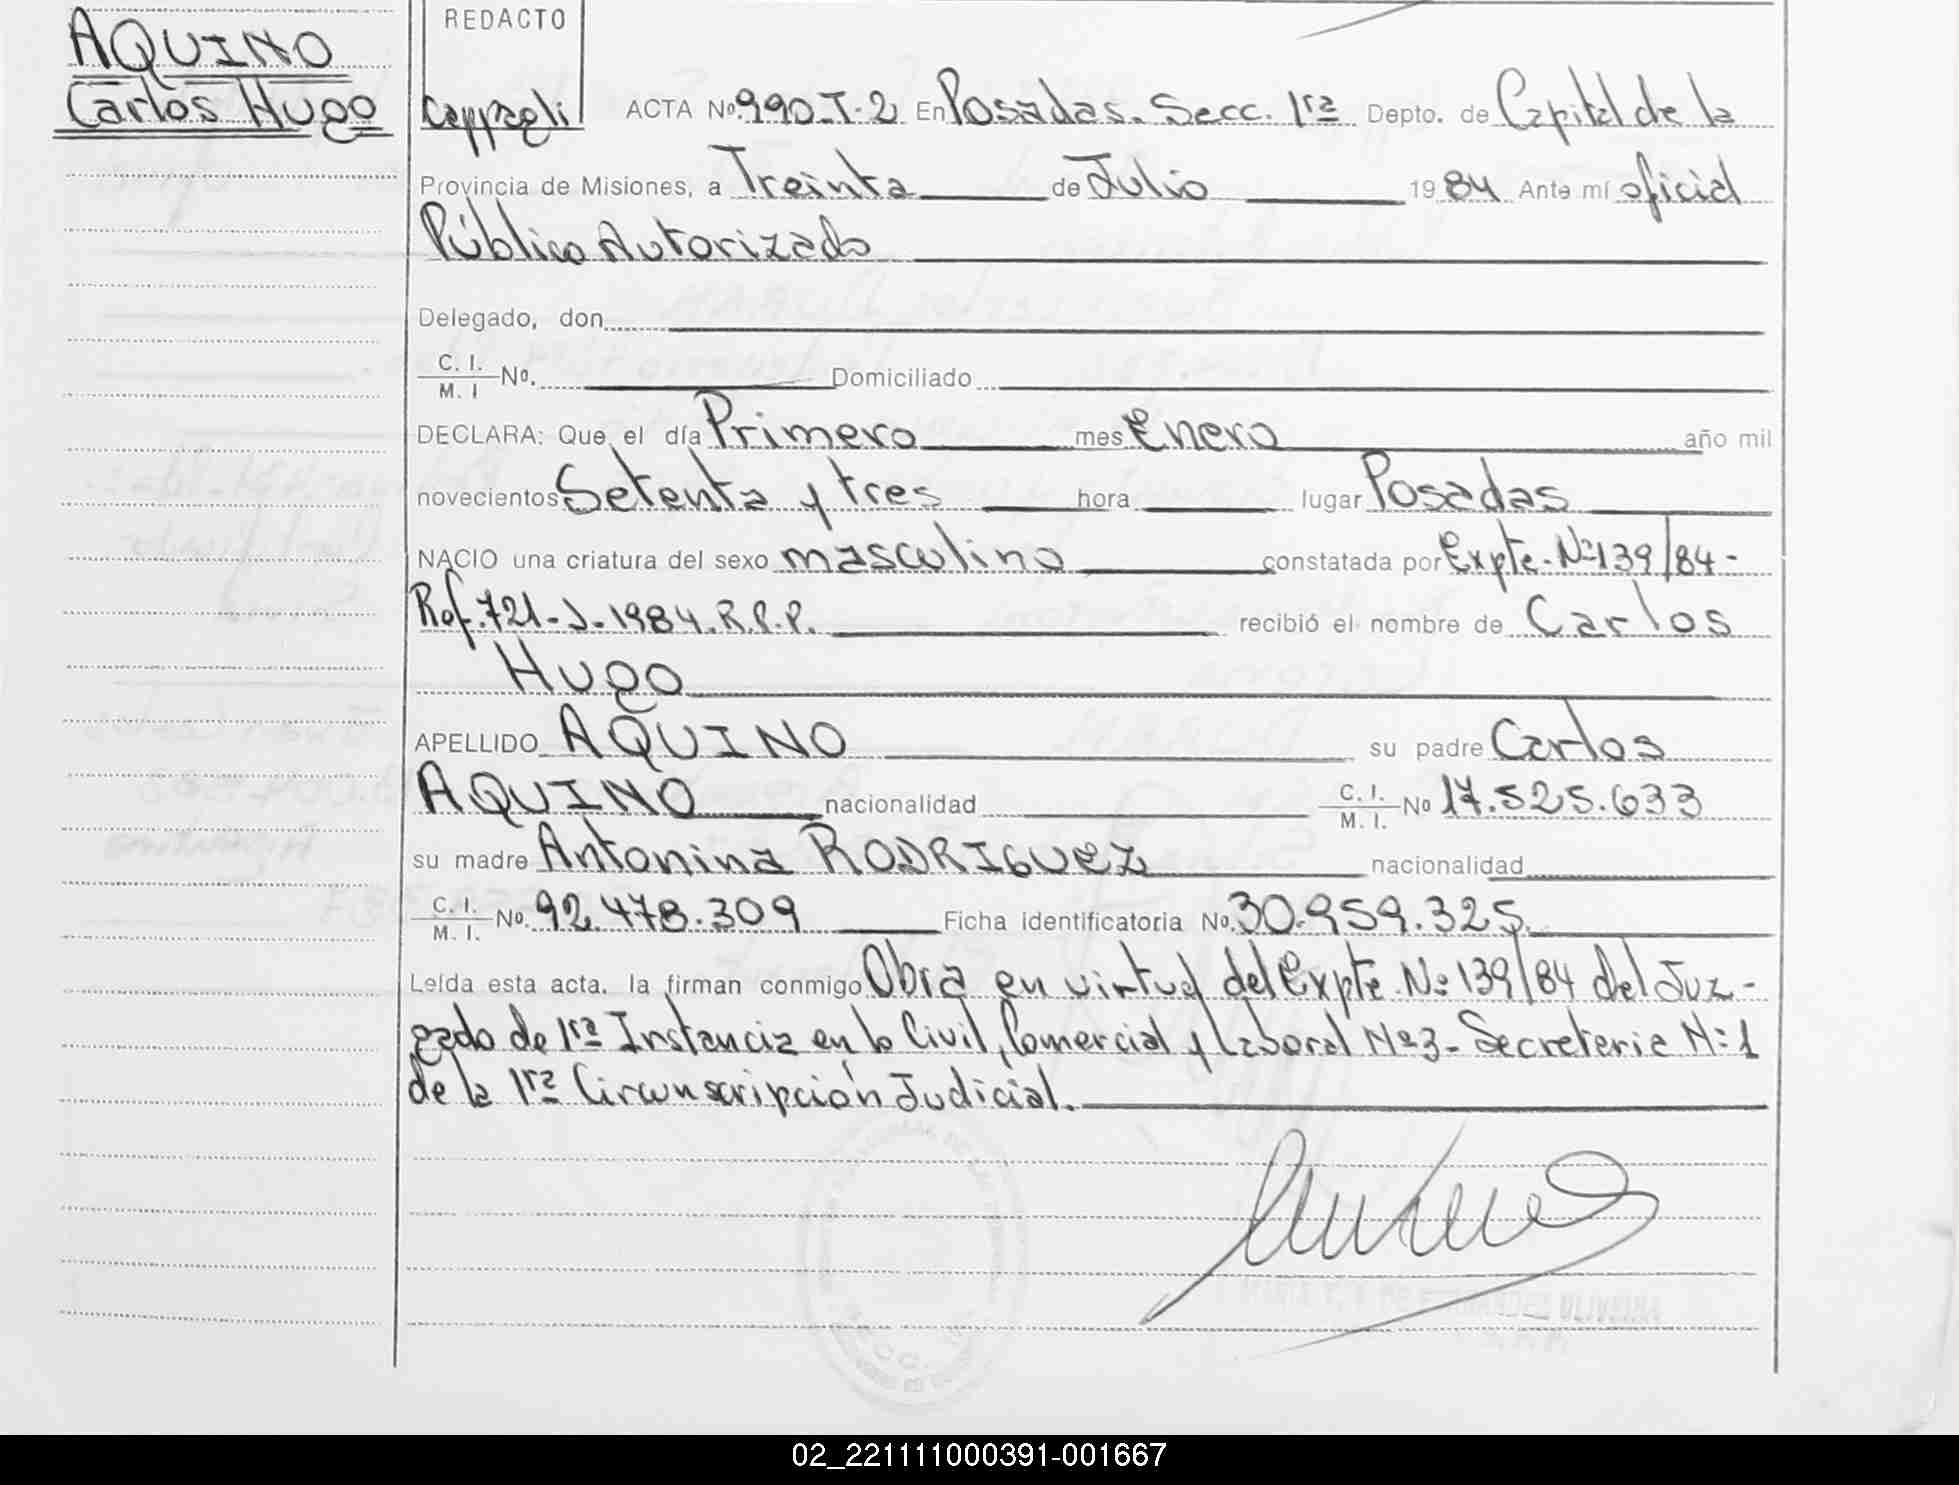 AQUINO
Carlos Hugo
REDACTO
ACTA Nº. 990-T-2 En Posadas. Secc. 1ra Depto. de Capital de la
Provincia de Misiones, a Treinta de Julio 1984 Ante mí oficial
Público Autorizado
Delegado, don
C. I. / M. I Nº. Domiciliado
DECLARA: Que el día Primero mes Enero año mil
novecientos Setenta y tres hora lugar Posadas
NACIO una criatura del sexo masculino constatada por Expte. Nº 139/84-
Ref. 721-J-1984. R.P.P. recibió el nombre de Carlos
Hugo
APELLIDO AQUINO su padre Carlos
AQUINO nacionalidad C. I. / M. I. Nº 17.525.633
su madre Antonina RODRIGUEZ nacionalidad
C. I. / M. I. Nº. 92.478.309 Ficha identificatoria Nº. 30.959.325.
Leída esta acta. la firman conmigo Obra en virtud del Expte. Nº 139/84 del Juz-
gado de 1ra Instancia en lo Civil, Comercial y Laboral Nº 3- Secreteria Nº 1
de la 1ra Circunscripción Judicial.
02_221111000391-001667